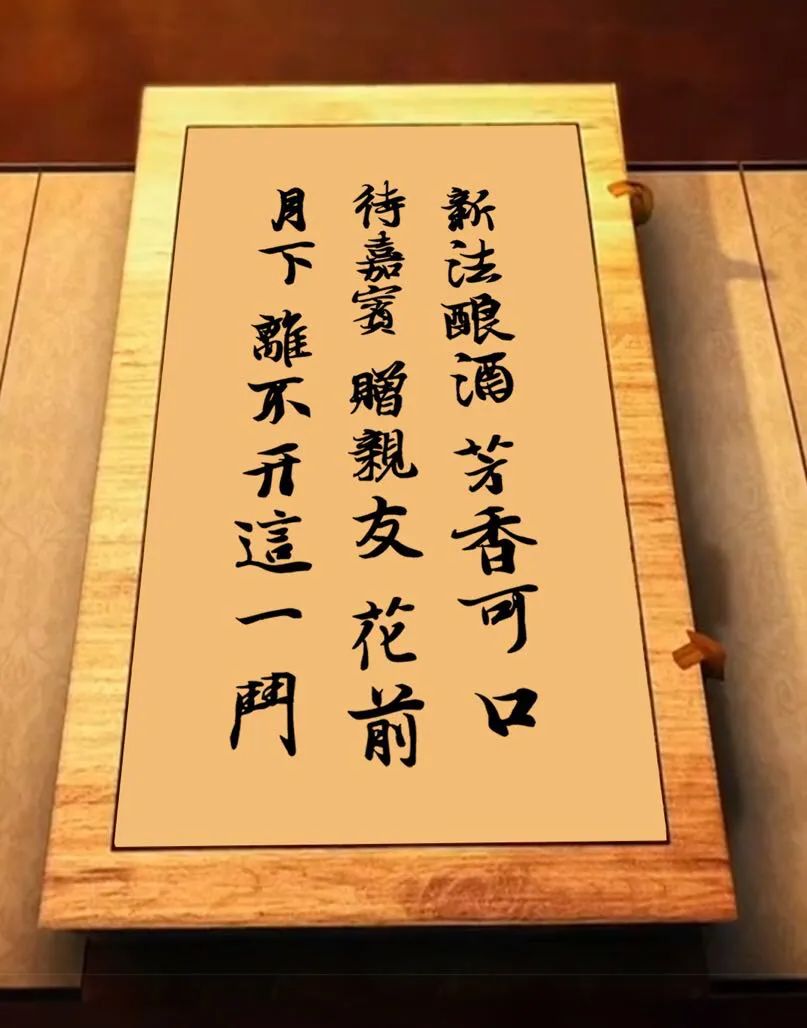 新法酿酒 芳香可口
待嘉賓 贈親友 花前
月下 離不开這一鬥